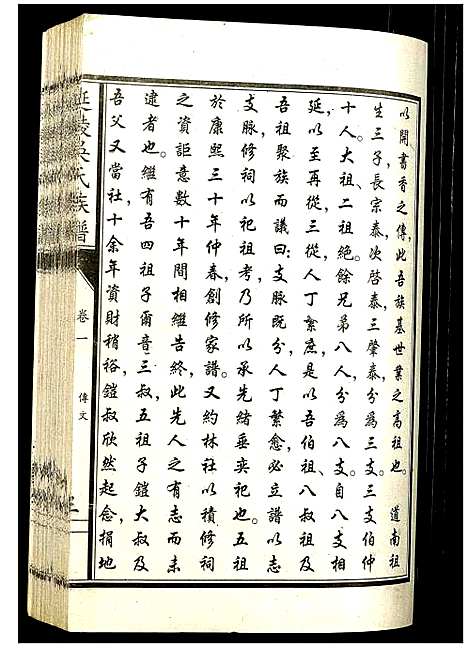 以開書香之傳，此吾族基世業之高祖也。　道南祖
生三子，長宗泰，次啓泰，三肇泰，分為三支。三支伯仲
十人。大祖、二祖絶。餘兄弟八人，分為八支。自八支相
延，以至再從，三從，人丁繁庶。是以吾伯祖、八叔祖及
吾祖聚族而議曰：支脈既分，人丁繁愈，必立譜以志
支脈，修祠以祀祖考，乃所以承先緒垂奕祀也。五祖
於康熙三十年仲春，創修家譜。又約林社以積修祠
之資，詎意數十年間相繼告終，此先人之有志而未
逮者也。繼有吾四祖子爾音三叔，五祖子鎧大叔及
吾父又當社十余年，資財稍裕，鎧叔欣然起念，捐地
延陵吳氏族譜
卷一
傳文